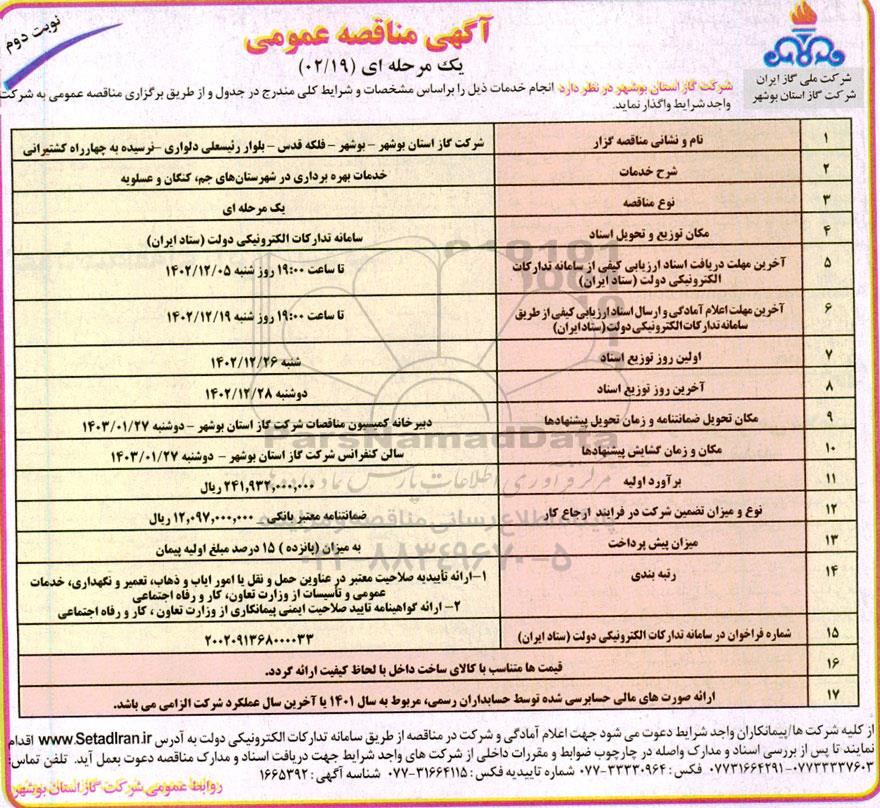 نوبت دوم
آگهی مناقصه عمومی
یک مرحله ای (۰۲/۱۹)
شرکت ملی گاز ایران
شرکت گاز استان بوشهر
شرکت گاز استان بوشهر در نظر دارد انجام خدمات ذیل را براساس مشخصات و شرایط کلی مندرج در جدول و از طریق برگزاری مناقصه عمومی به شرکت
واجد شرایط واگذار نماید.
۱ نام و نشانی مناقصه گزار شرکت گاز استان بوشهر – بوشهر – فلکه قدس – بلوار رئیسعلی دلواری –نرسیده به چهارراه کشتیرانی
۲ شرح خدمات خدمات بهره برداری در شهرستان‌های جم، کنگان و عسلویه
۳ نوع مناقصه یک مرحله ای
۴ مکان توزیع و تحویل اسناد سامانه تدارکات الکترونیکی دولت (ستاد ایران)
۵ آخرین مهلت دریافت اسناد ارزیابی کیفی از سامانه تدارکات الکترونیکی دولت (ستاد ایران) تا ساعت ۱۹:۰۰ روز شنبه ۱۴۰۲/۱۲/۰۵
۶ آخرین مهلت اعلام آمادگی و ارسال اسناد ارزیابی کیفی از طریق سامانه تدارکات الکترونیکی دولت (ستاد ایران) تا ساعت ۱۹:۰۰ روز شنبه ۱۴۰۲/۱۲/۱۹
۷ اولین روز توزیع اسناد شنبه ۱۴۰۲/۱۲/۲۶
۸ آخرین روز توزیع اسناد دوشنبه ۱۴۰۲/۱۲/۲۸
۹ مکان تحویل ضمانتنامه و زمان تحویل پیشنهادها دبیرخانه کمیسیون مناقصات شرکت گاز استان بوشهر – دوشنبه ۱۴۰۳/۰۱/۲۷
۱۰ مکان و زمان گشایش پیشنهادها سالن کنفرانس شرکت گاز استان بوشهر – دوشنبه ۱۴۰۳/۰۱/۲۷
۱۱ برآورد اولیه ۲۴۱,۹۳۲,۰۰۰,۰۰۰ ریال
۱۲ نوع و میزان تضمین شرکت در فرایند ارجاع کار ضمانتنامه معتبر بانکی- ۱۲,۰۹۷,۰۰۰,۰۰۰ ریال
۱۳ میزان پیش پرداخت به میزان (پانزده) ۱۵ درصد مبلغ اولیه پیمان
۱۴ رتبه بندی ۱–ارائه تأییدیه صلاحیت معتبر در عناوین حمل و نقل یا امور ایاب و ذهاب، تعمیر و نگهداری، خدمات
عمومی و تأسیسات از وزارت تعاون، کار و رفاه اجتماعی
۲– ارائه گواهینامه تایید صلاحیت ایمنی پیمانکاری از وزارت تعاون ، کار و رفاه اجتماعی
۱۵ شماره فراخوان در سامانه تدارکات الکترونیکی دولت (ستاد ایران) ۲۰۰۲۰۹۱۳۶۸۰۰۰۰۳۳
۱۶ قیمت ها متناسب با کالای ساخت داخل با لحاظ کیفیت ارائه گردد.
۱۷ ارائه صورت های مالی حسابرسی شده توسط حسابداران رسمی، مربوط به سال ۱۴۰۱ یا آخرین سال عملکرد شرکت الزامی می باشد.
ParsNamadData
از کلیه شرکت ها/پیمانکاران واجد شرایط دعوت می شود جهت اعلام آمادگی و شرکت در مناقصه از طریق سامانه تدارکات الکترونیکی دولت به آدرس www.SetadIran.ir اقدام
نمایند تا پس از بررسی اسناد و مدارک واصله در چارچوب ضوابط و مقررات داخلی از شرکت های واجد شرایط جهت دریافت اسناد و مدارک مناقصه دعوت بعمل آید. تلفن تماس:
۰۷۷۳۳۳۳۷۶۰۳-۰۷۷۳۱۶۶۴۲۹۱ فکس: ۰۷۷-۳۳۳۳۰۹۶۴ شماره تاییدیه فکس: ۰۷۷-۳۱۶۶۴۱۱۵ شناسه آگهی: ۱۶۶۵۳۹۲
روابط عمومی شرکت گاز استان بوشهر